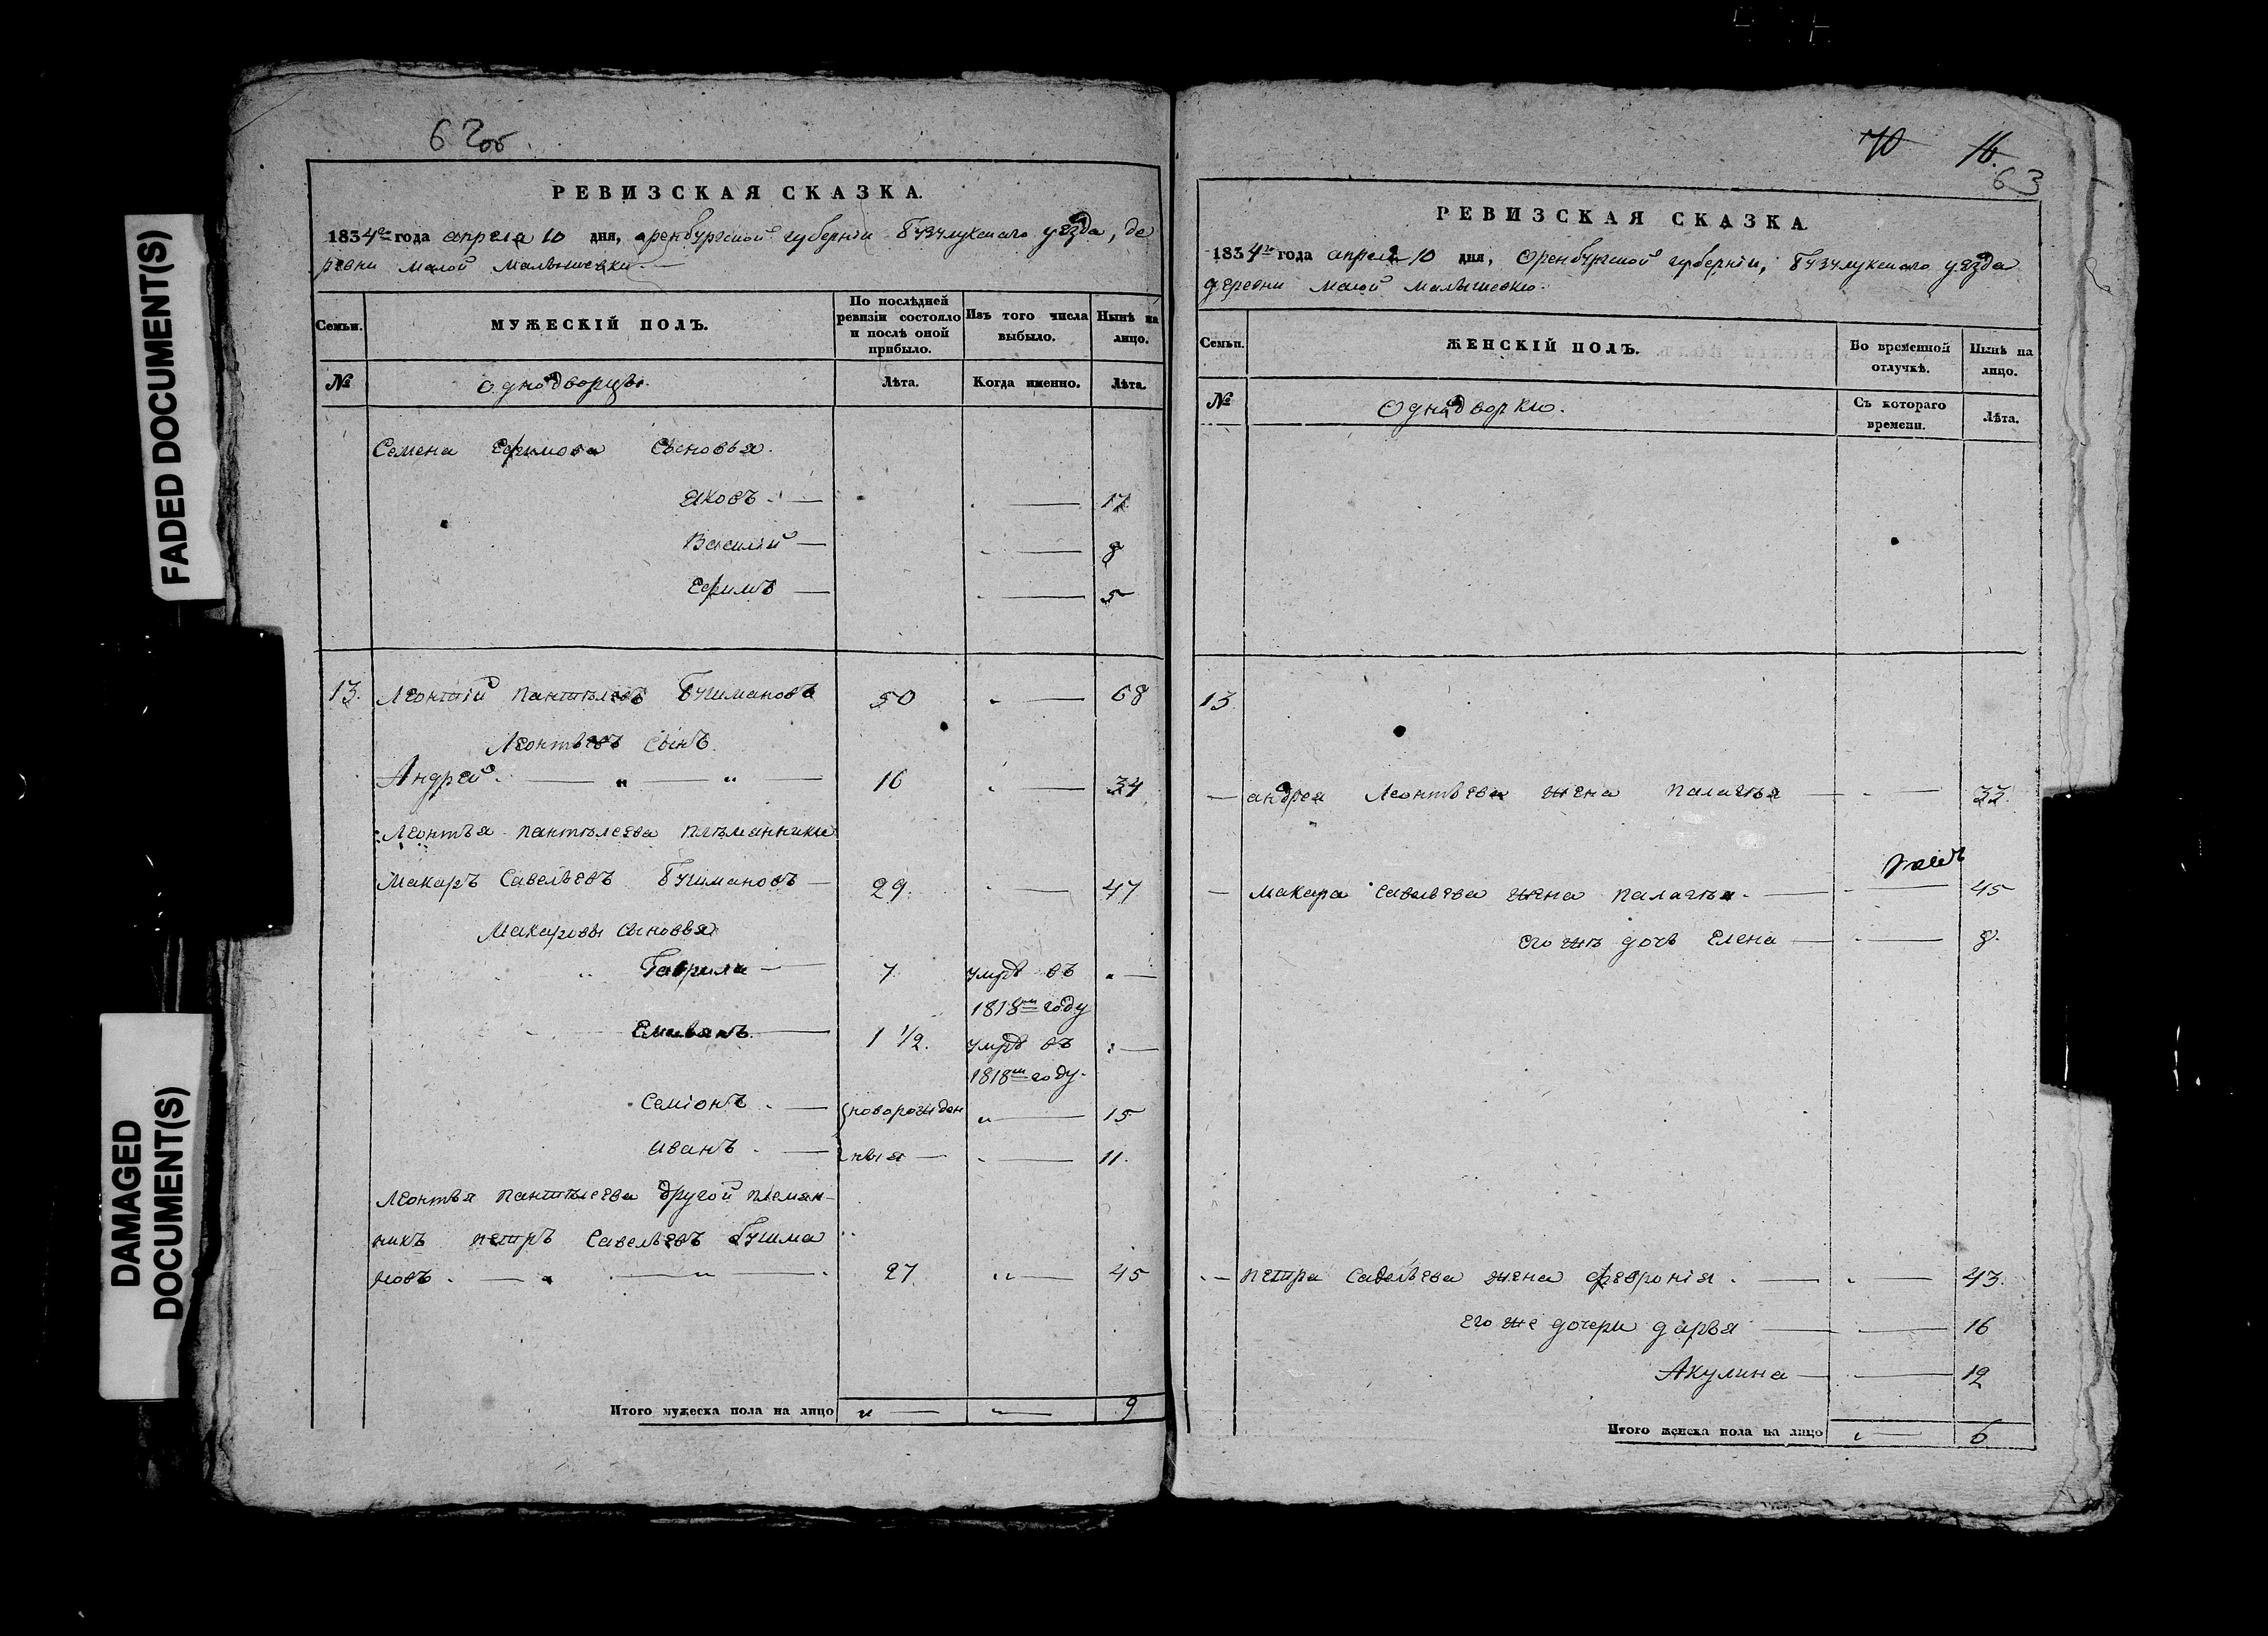 FADED DOCUMENT(S)
DAMAGED
DOCUMENT(S)
62об.
РЕВИЗСКАЯ СКАЗКА.
1834го года апреля 10 дня, оренбургской губернiи Бузулукскаго уезда, де
ревни малой малышевки.
Семьи.
МУЖЕСКIЙ ПОЛЪ.
По послѣдней
ревизiи состояло
и послѣ оной
прибыло.
Изъ того числа
выбыло.
Нынѣ на
лицо.
№
однодворцы.
Лѣта.
Когда именно.
Лѣта.
Семена Ефимова Сыновья.
Яковъ. — 17
Василiй — 8
Ефимъ — 5
13. Леонтiй пантѣлевъ Бушмановъ 50 — 68
Леонтьевъ сынъ.
Андрей. — „ — „ — 16 — 34
Леонтья пантѣлеева племянники
Макаръ Савельевъ Бушмановъ — 29. — 47
Макаровы сыновья
Гаврила — 7 умре въ —
1818м году
1 1/2. умре въ —
1818м году.
Семiонъ. — новорожден „ — 15
иванъ. — ныя — — 11.
Леонтья пантѣлеева другой племян-
никъ петръ Савельевъ Бушма
новъ. — „ — „ 27 „ — 45
Итого мужеска пола на лицо „ — „ — 9
70 16.
63
РЕВИЗСКАЯ СКАЗКА.
1834го года апреля 10 дня, Оренбургской губернiи, Бузулукскаго уезда
деревни малой малышевки.
Семьи.
ЖЕНСКIЙ ПОЛЪ.
Во временной
отлучкѣ.
Нынѣ на
лицо.
№
Однодворки.
Съ котораго
времени.
Лѣта.
13
— андрея Леонтьева жена палагѣя — — 33.
— макара савельева жена палагѣя. — — 45
его жъ дочь Елена — — 8.
— петра савельева жена феврониiя. — — 43.
его же дочери дарья — — 16
Акулина — — 12
Итого женска пола на лицо „ — 6